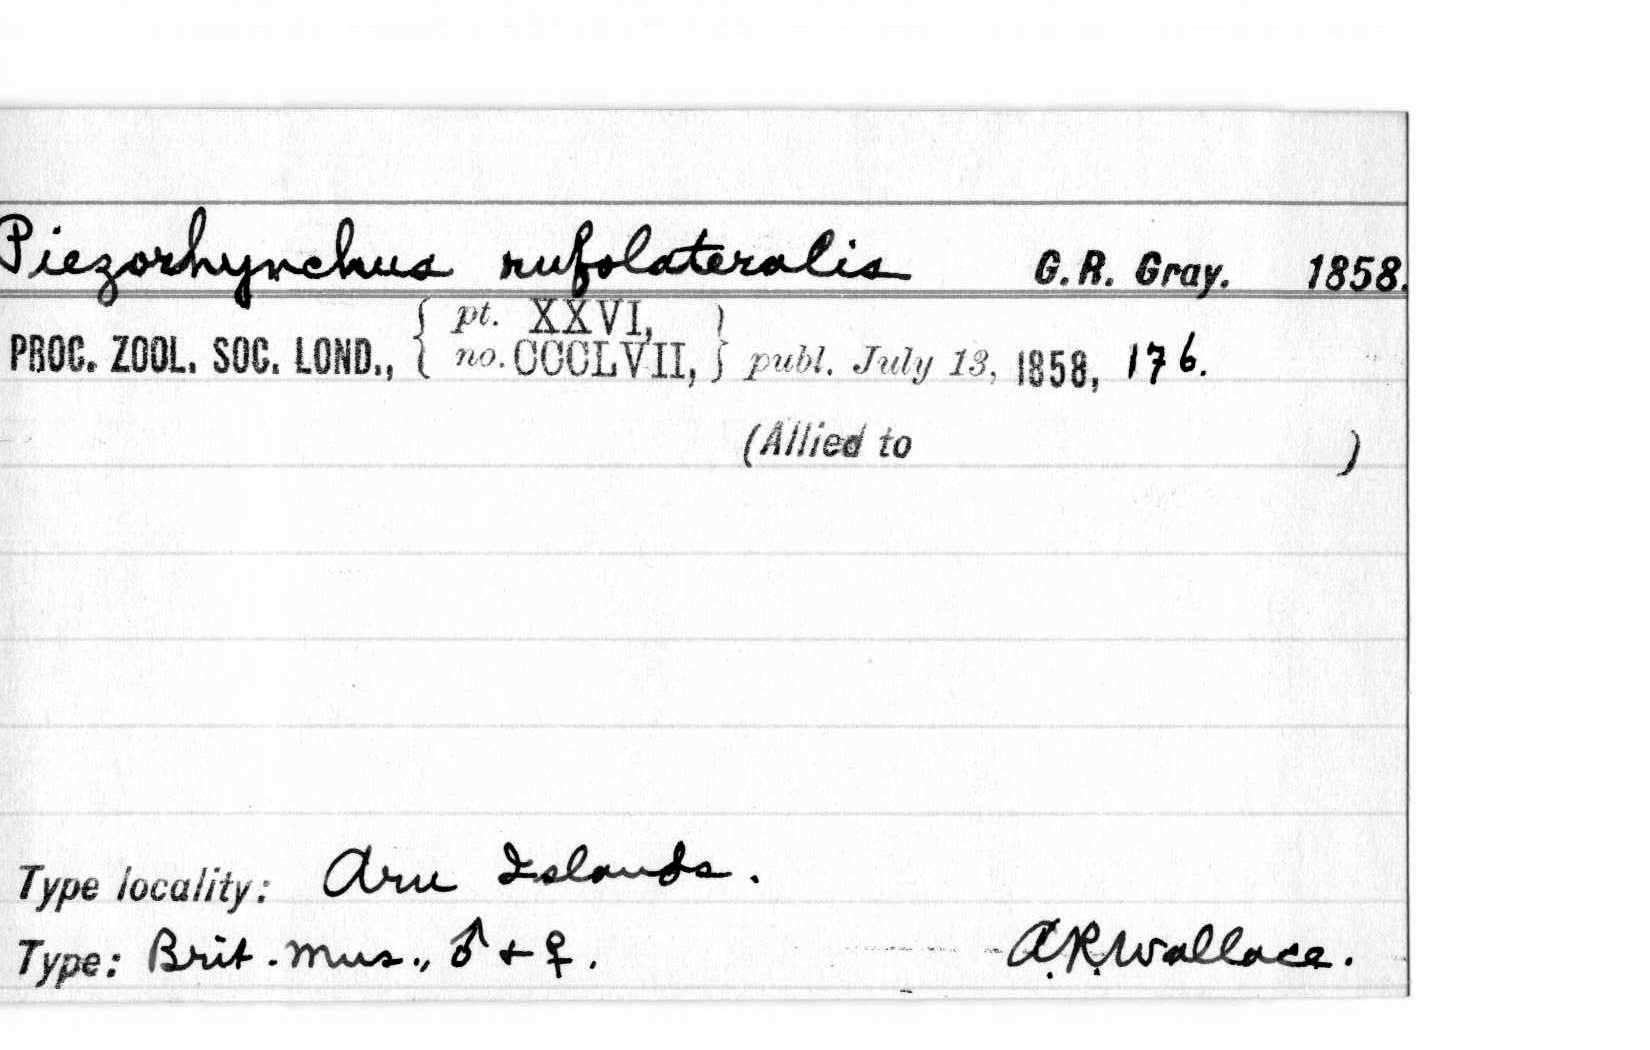 Piezorhynchus rufolateralis G. R. Gray. 1858.
PROC. ZOOL. SOC. LOND., { pt. XXVI, no. CCCLVII, } publ. July 13, 1858, 176.
(Allied to )
Type locality: Aru Islands.
Type: Brit. Mus., ♂ + ♀. A.R. Wallace.